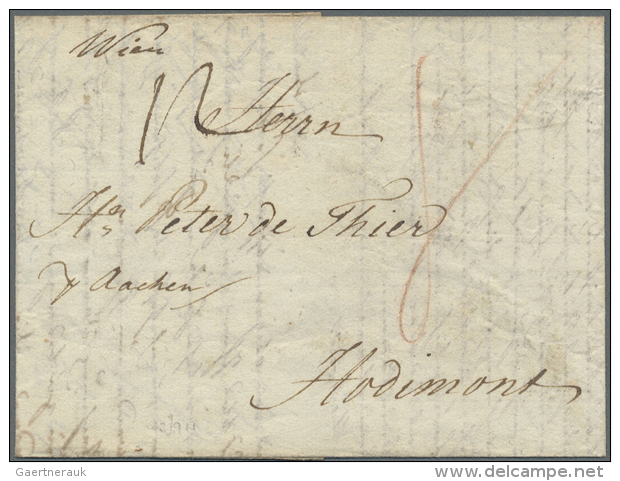 Wien
Herrn
Hn Peter de Thier
p Aachen
Hodimont
Gaertnerauk
delcampe.net